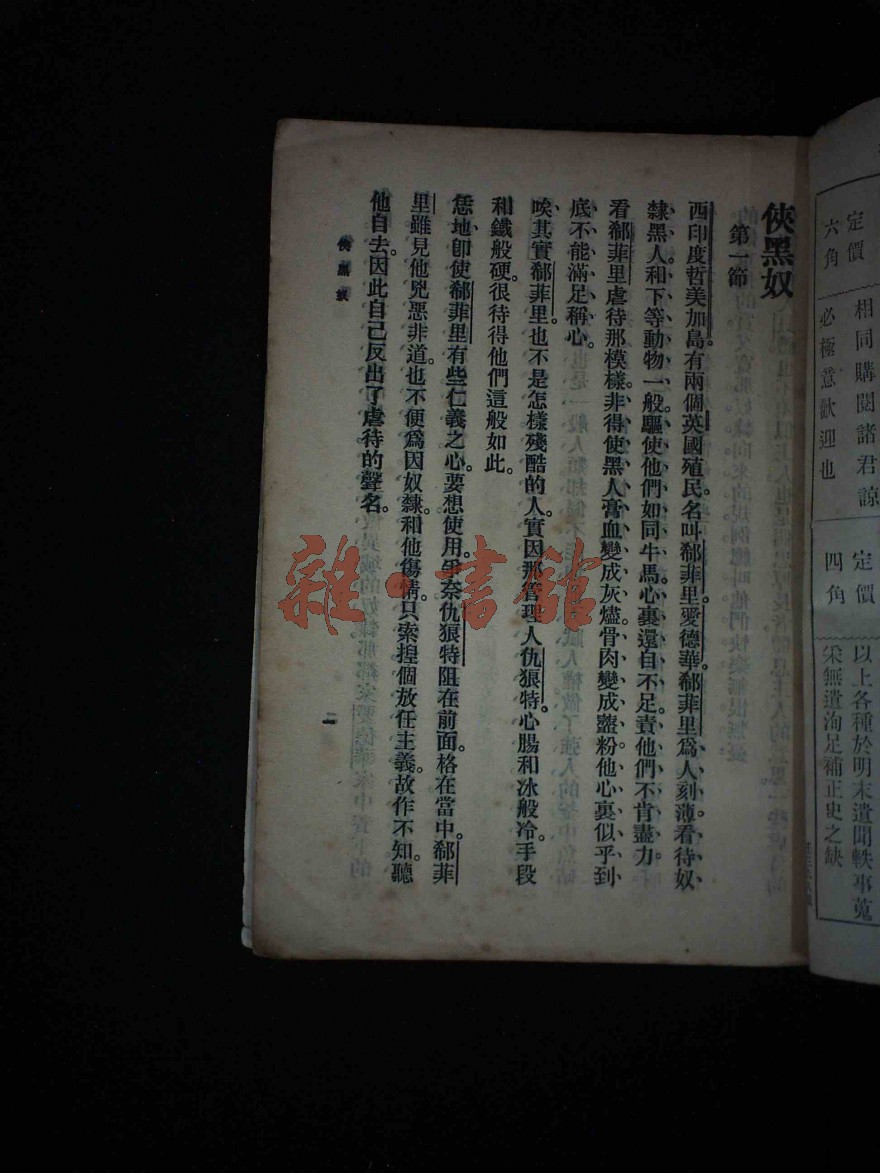 定價
六角
相同購閱諸君諒
必極意歡迎也
定價
四角
以上各種於明末遺聞軼事蒐
采無遺洵足補正史之缺
俠黑奴
第一節
西印度哲美加島有兩個英國殖民名叫郗菲里愛德華。郗菲里爲人刻薄看待奴
隸黑人和下等動物一般驅使他們如同牛馬心裏還自不足責他們不肯盡力。
看郗菲里虐待那模樣非得使黑人膏血變成灰燼骨肉變成虀粉他心裏似乎到
底不能滿足稱心。
唉其實郗菲里也不是怎樣殘酷的人實因那管理人仇狠特心腸和冰般冷。手段
和鐵般硬。很待得他們這般如此。
恁地卽使郗菲里有些仁義之心。要想使用。爭奈仇狠特阻在前面。格在當中。郗菲
里雖見他兇惡非道。也不便爲因奴隸。和他傷情。只索揑個放任主義。故作不知。聽
他自去。因此自己反出了虐待的聲名。
俠黑奴
雜·書館